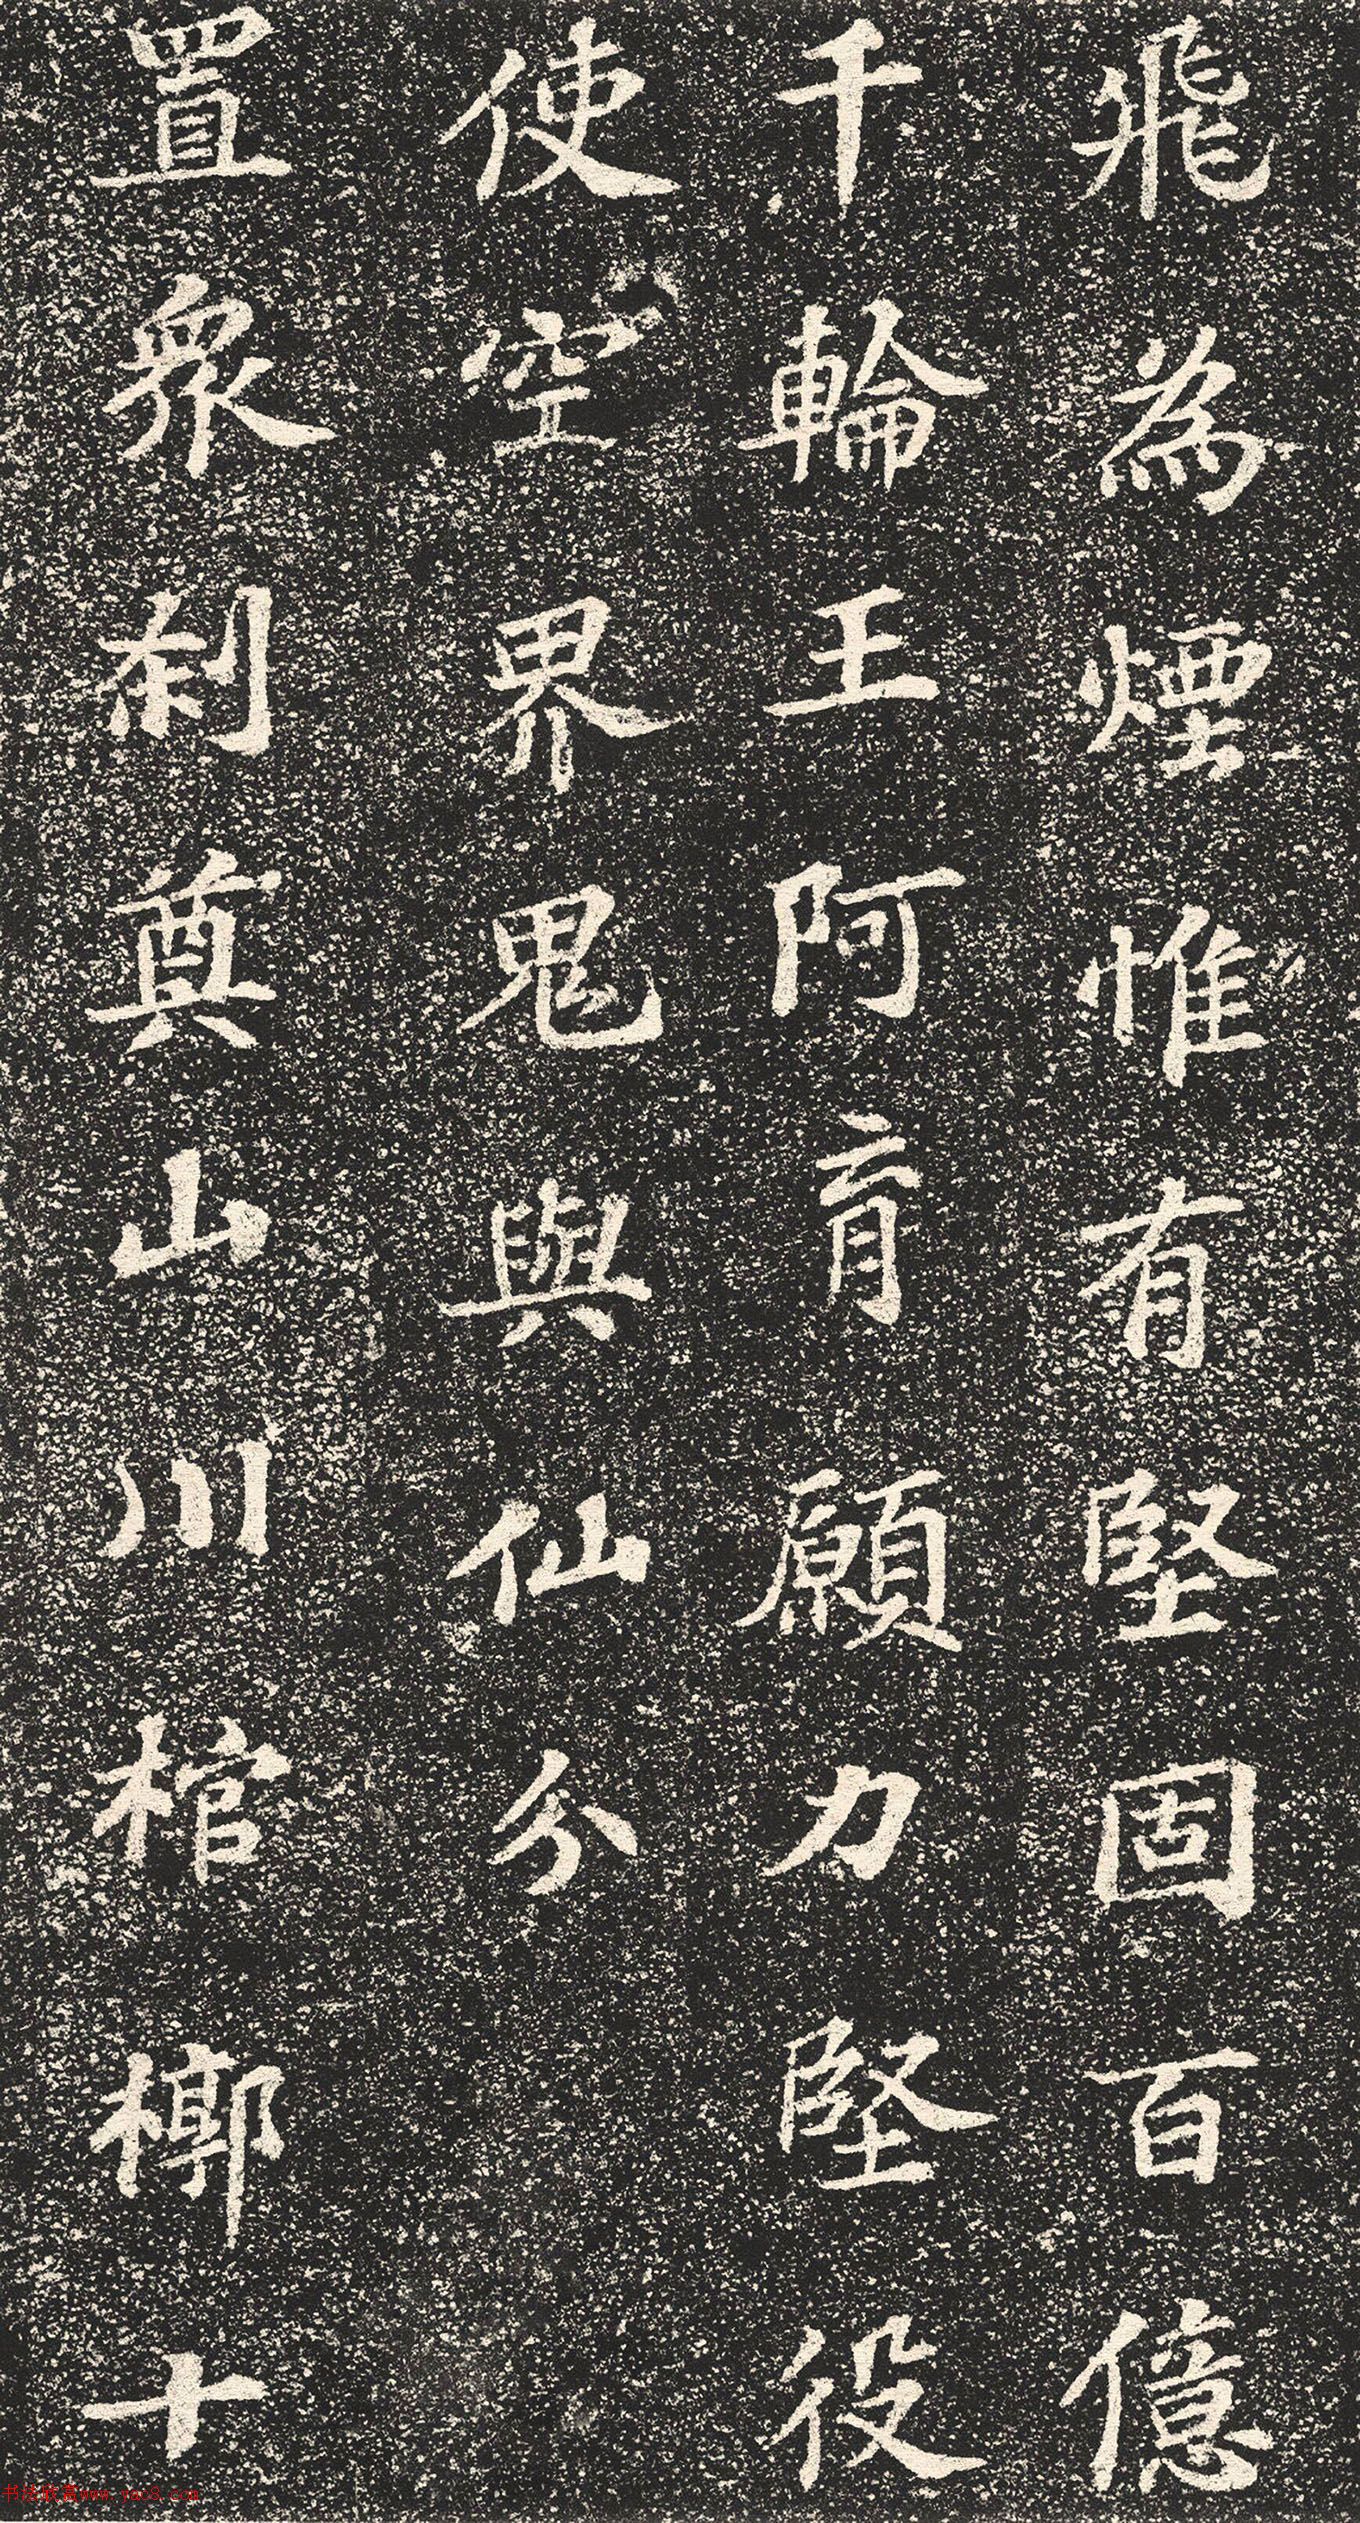 飛為煙惟有堅固百億
千輪王阿育願力堅役
使空界鬼與仙分
置眾剎奠山川棺槨十
书法欣赏www.yac8.com